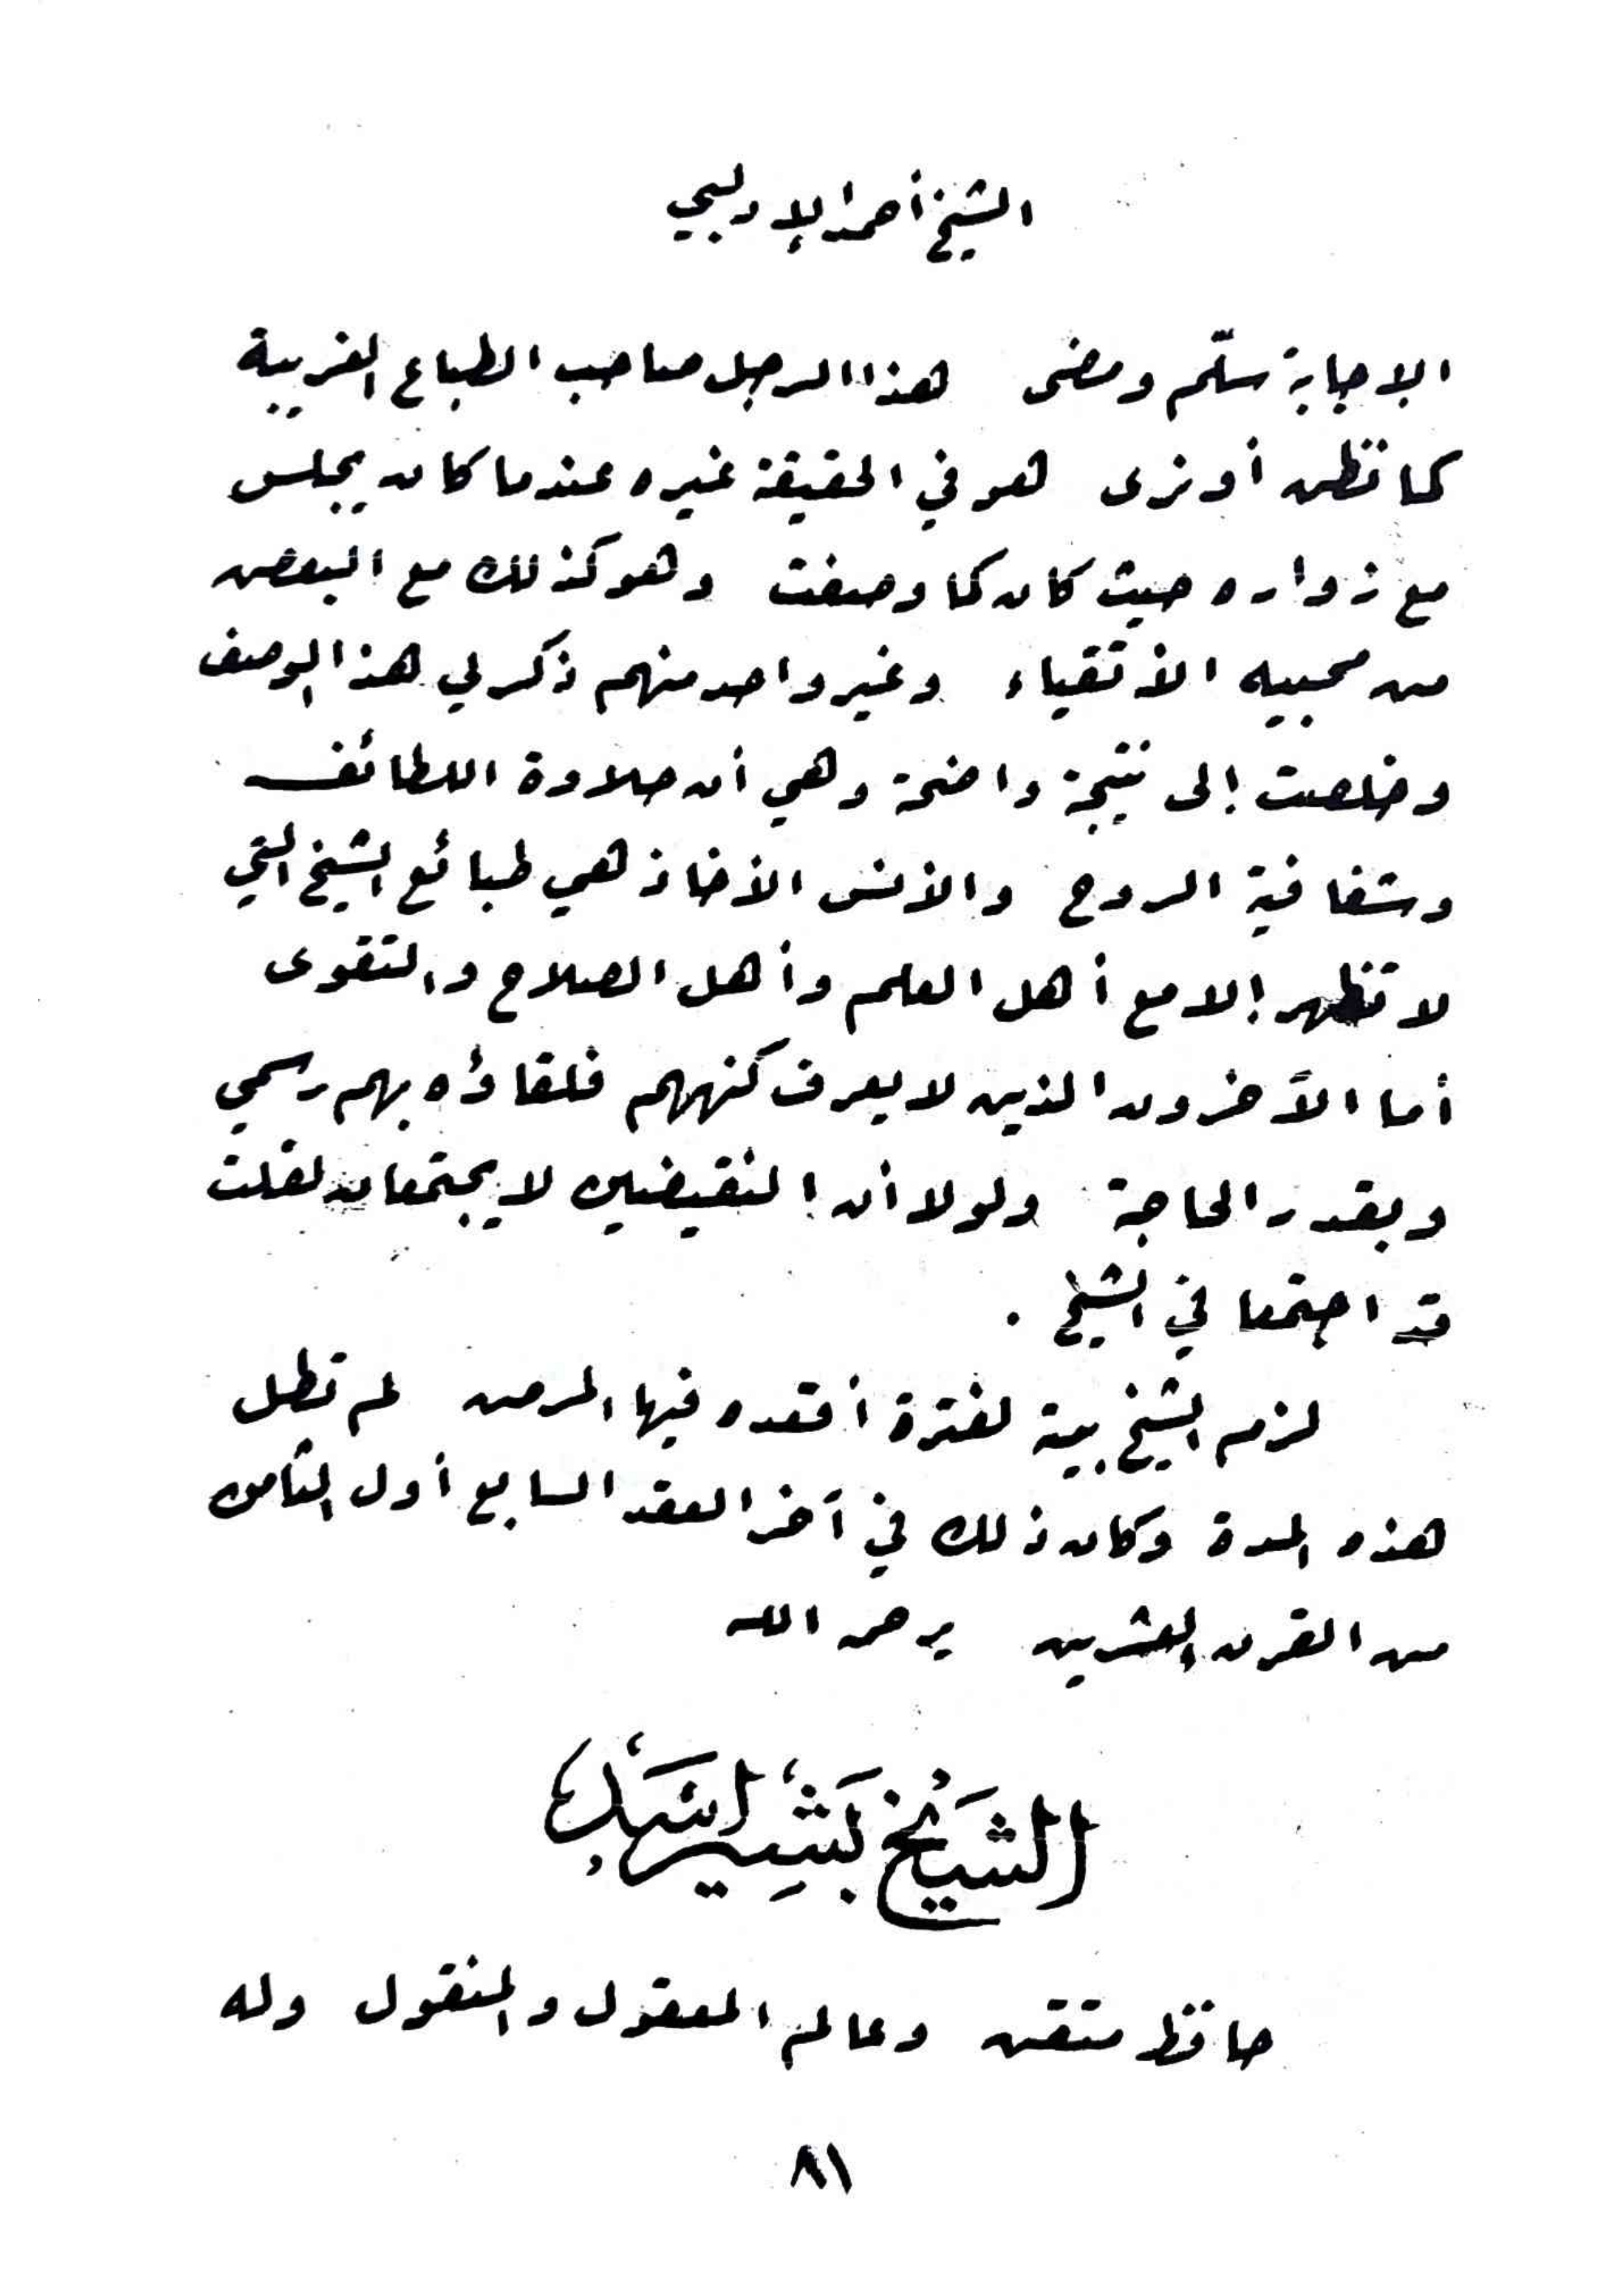 الشيخ أحمد الإدلبي
الإجابة سلّم ومضى هذا الرجل صاحب الطباع الغريبة
كما نظن أو نرى هو في الحقيقة غيره عندما كان يجلس
مع زواره حيث كان كما وصفت وهو كذلك مع البعض
من محبيه الأتقياء وغير واحد منهم ذكر لي هذا الوصف
وخلصت إلى نتيجة واضحة وهي أن حلاوة اللطائف
وشفافية الروح والأنس الأخاذ هي طبائع الشيخ التي
لا تظهر إلا مع أهل العلم وأهل الصلاح والتقوى
أما الآخرون الذين لا يعرف كنههم فلقاؤه بهم رسمي
وبقدر الحاجة ولولا أن النقيضين لا يجتمعان لقلت
قد اجتمعا في الشيخ .
لزم الشيخ بيته لفترة أقعده فيها المرض لم تطل
هذه المدة وكان ذلك في آخر العقد السابع أول الثامن
من القرن العشرين يرحمه الله
الشَيْخ بَشِير
حافظ متقن وعالم المعقول والمنقول وله
٨١